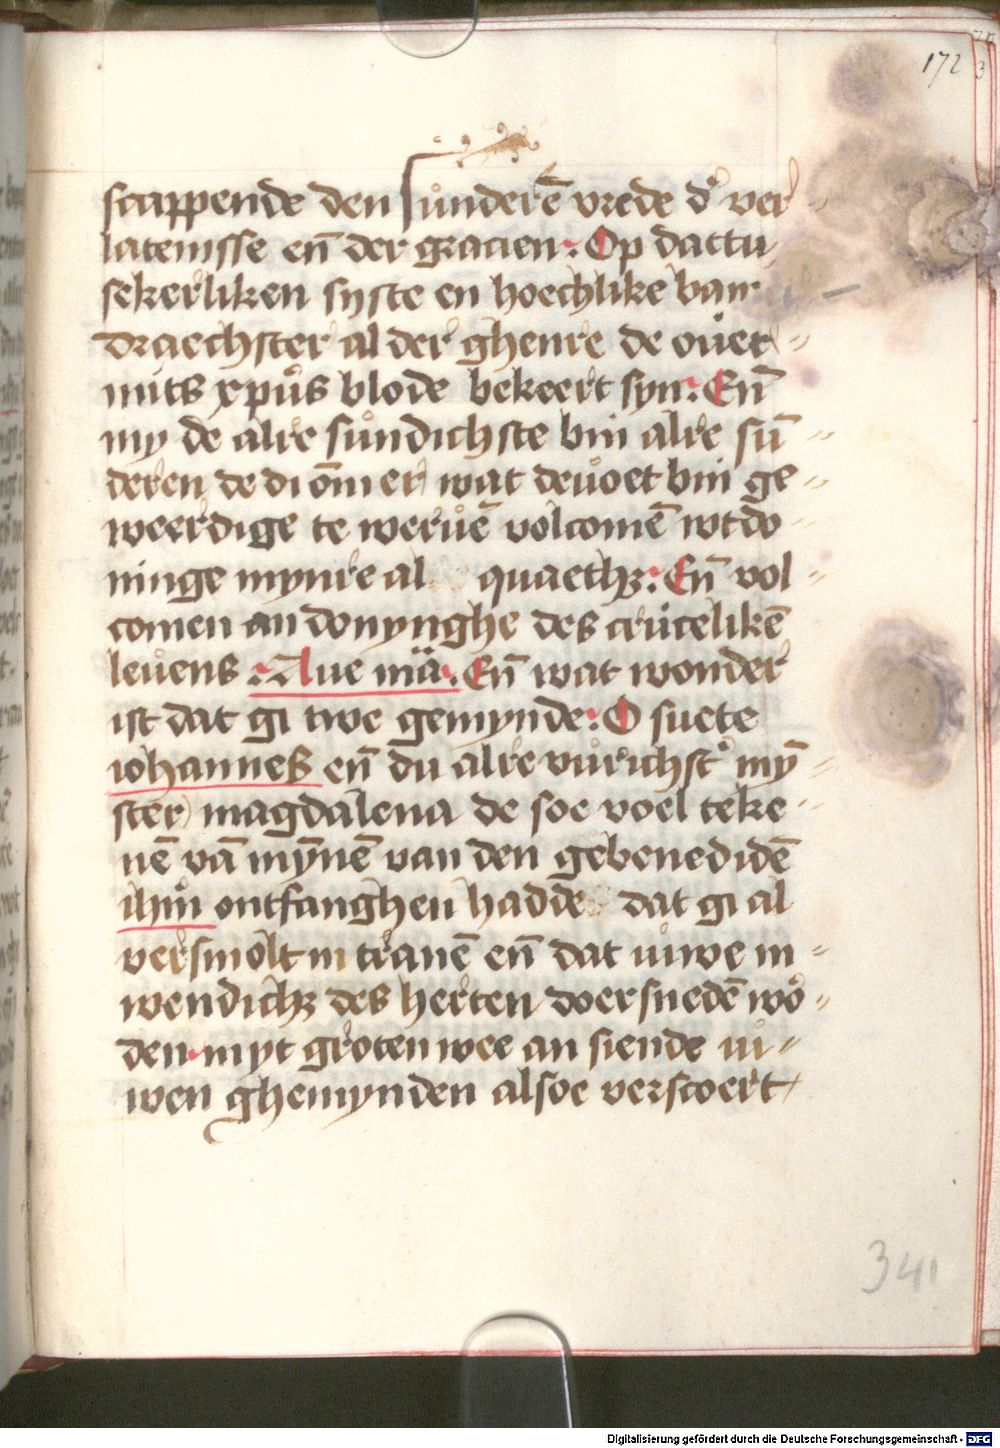 172
scappende den sunderē vrede d' ver
latenisse eñ der gracien. Op dattu
sekerliken syste en hoechlike
draechster al der ghenre de ouer
mits xpūs blode bekeert syn. Eñ
my de alre sundichste bin alre sū
deren de di ōmer wat deuoet bin ge
weerdige te weruē volcomē wtdo
ninge mynre al quaethz. Eñ vol
comen an donynghe des cruceliken̄
leuens. Aue mā. Eñ wat wonder
ist dat gi twe gemynde. O suete
iohannes eñ du alre vurichst' mȳ
ster magdalena de soe voel teke
nē vā mȳnē van den gebenedidē
ihm̄ ontfanghen hadde dat gi al
versmolt in tranē eñ dat uwe in
wendichz des herten doersnedē wo
den myt groten wee an siende u
wen ghemynden alsoe verscoert
341
Digitalisierung gefördert durch die Deutsche Forschungsgemeinschaft - DFG